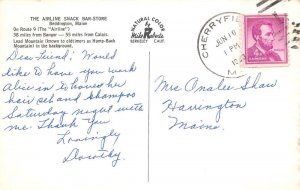 THE AIRLINE SNACK BAR-STORE
Beddington, Maine
On Route 9 (The "Airline")
38 miles from Bangor — 55 miles from Calais.
Lead Mountain (known to oldtimers as Hump-Back
Mountain) in the background.
NATURAL COLOR
Mike Roberts
BERKELEY CALIF.
Dear Friend; Would
like to have you work
Alice in to have her
hair set and shampoo
Saturday night with
me. Thank you
Lovingly
Dorothy
CHERRYFIE
JUN 10
PM
M
LINCOLN
Mrs Onalee Shaw
Harrington
Maine.